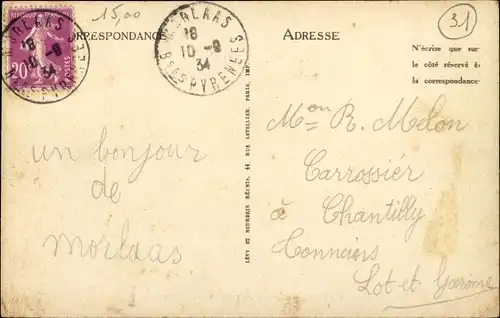 15,00
31
CORRESPONDANCE
ADRESSE
MORLAAS
18
10-8
34
BSES PYRENEES
MORLAAS
18
10-8
34
20
POSTES
N'écrise que sur
le côté réservé à
la correspondance
un bonjour
de
morlaas
LÉVY ET NEURDEIN RÉUNIS, 44, RUE LETELLIER, PARIS, IMP.
Mon R. Melon
Carrossier
à Chantilly
Tonneins
Lot et Garonne